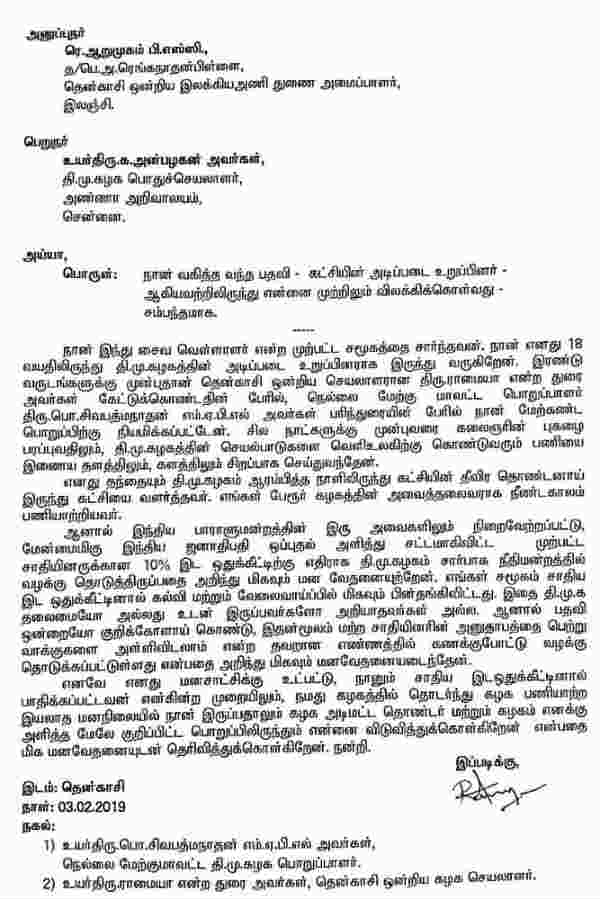 அனுப்புநர்
ரெ.ஆறுமுகம் பி.எஸ்ஸி.,
த/பெ.அ.ரெங்கநாதன்பிள்ளை,
தென்காசி ஒன்றிய இலக்கியஅணி துணை அமைப்பாளர்,
இலஞ்சி.
பெறுநர்
உயர்திரு.க.அன்பழகன் அவர்கள்,
தி.மு.கழக பொதுச்செயலாளர்,
அண்ணா அறிவாலயம்,
சென்னை.
அய்யா,
பொருள்: நான் வகித்த வந்த பதவி - கட்சியின் அடிப்படை உறுப்பினர் -
ஆகியவற்றிலிருந்து என்னை முற்றிலும் விலக்கிக்கொள்வது -
சம்பந்தமாக.
-----
நான் இந்து சைவ வெள்ளாளர் என்ற முற்பட்ட சமூகத்தை சார்ந்தவன். நான் எனது 18
வயதிலிருந்து தி.மு.கழகத்தின் அடிப்படை உறுப்பினராக இருந்து வருகிறேன். இரண்டு
வருடங்களுக்கு முன்புதான் தென்காசி ஒன்றிய செயலாளரான திரு.ராமையா என்ற துரை
அவர்கள் கேட்டுக்கொண்டதின் பேரில், நெல்லை மேற்கு மாவட்ட பொறுப்பாளர்
திரு.பொ.சிவபத்மநாதன் எம்.ஏ.பி.எல் அவர்கள் பரிந்துரையின் பேரில் நான் மேற்கண்ட
பொறுப்பிற்கு நியமிக்கப்பட்டேன். சில நாட்களுக்கு முன்புவரை கலைஞரின் புகழை
பரப்புவதிலும், தி.மு.கழகத்தின் செயல்பாடுகளை வெளிஉலகிற்கு கொண்டுவரும் பணியை
இணைய தளத்திலும், களத்திலும் சிறப்பாக செய்துவந்தேன்.
எனது தந்தையும் தி.மு.கழகம் ஆரம்பித்த நாளிலிருந்து கட்சியின் தீவிர தொண்டனாய்
இருந்து கட்சியை வளர்த்தவர். எங்கள் பேரூர் கழகத்தின் அவைத்தலைவராக நீண்டகாலம்
பணியாற்றியவர்.
ஆனால் இந்திய பாராளுமன்றத்தின் இரு அவைகளிலும் நிறைவேற்றப்பட்டு,
மேன்மைமிகு இந்திய ஜனாதிபதி ஒப்புதல் அளித்து சட்டமாகிவிட்ட முற்பட்ட
சாதியினருக்கான 10% இட ஒதுக்கீட்டிற்கு எதிராக தி.மு.கழகம் சார்பாக நீதிமன்றத்தில்
வழக்கு தொடுத்திருப்பதை அறிந்து மிகவும் மன வேதனையுற்றேன். எங்கள் சமூகம் சாதிய
இட ஒதுக்கீட்டினால் கல்வி மற்றும் வேலைவாய்ப்பில் மிகவும் பின்தங்கிவிட்டது. இதை தி.மு.க
தலைமையோ அல்லது உடன் இருப்பவர்களோ அறியாதவர்கள் அல்ல. ஆனால் பதவி
ஒன்றையோ குறிக்கோளாய் கொண்டு, இதன்மூலம் மற்ற சாதியினரின் அனுதாபத்தை பெற்று
வாக்குகளை அள்ளிவிடலாம் என்ற தவறான எண்ணத்தில் கணக்குபோட்டு வழக்கு
தொடுக்கப்பட்டுள்ளது என்பதை அறிந்து மிகவும் மனவேதனையடைந்தேன்.
எனவே எனது மனசாட்சிக்கு உட்பட்டு, நானும் சாதிய இடஒதுக்கீட்டினால்
பாதிக்கப்பட்டவன் என்கின்ற முறையிலும், நமது கழகத்தில் தொடர்ந்து கழக பணியாற்ற
இயலாத மனநிலையில் நான் இருப்பதாலும் கழக அடிமட்ட தொண்டர் மற்றும் கழகம் எனக்கு
அளித்த மேலே குறிப்பிட்ட பொறுப்பிலிருந்தும் என்னை விடுவித்துக்கொள்கிறேன் என்பதை
மிக மனவேதனையுடன் தெரிவித்துக்கொள்கிறேன். நன்றி.
இப்படிக்கு,
இடம்: தென்காசி
நாள்: 03.02.2019
நகல்:
1) உயர்திரு.பொ.சிவபத்மநாதன் எம்.ஏ.பி.எல் அவர்கள்,
நெல்லை மேற்குமாவட்ட தி.மு.கழக பொறுப்பாளர்.
2) உயர்திரு.ராமையா என்ற துரை அவர்கள், தென்காசி ஒன்றிய கழக செயலாளர்.